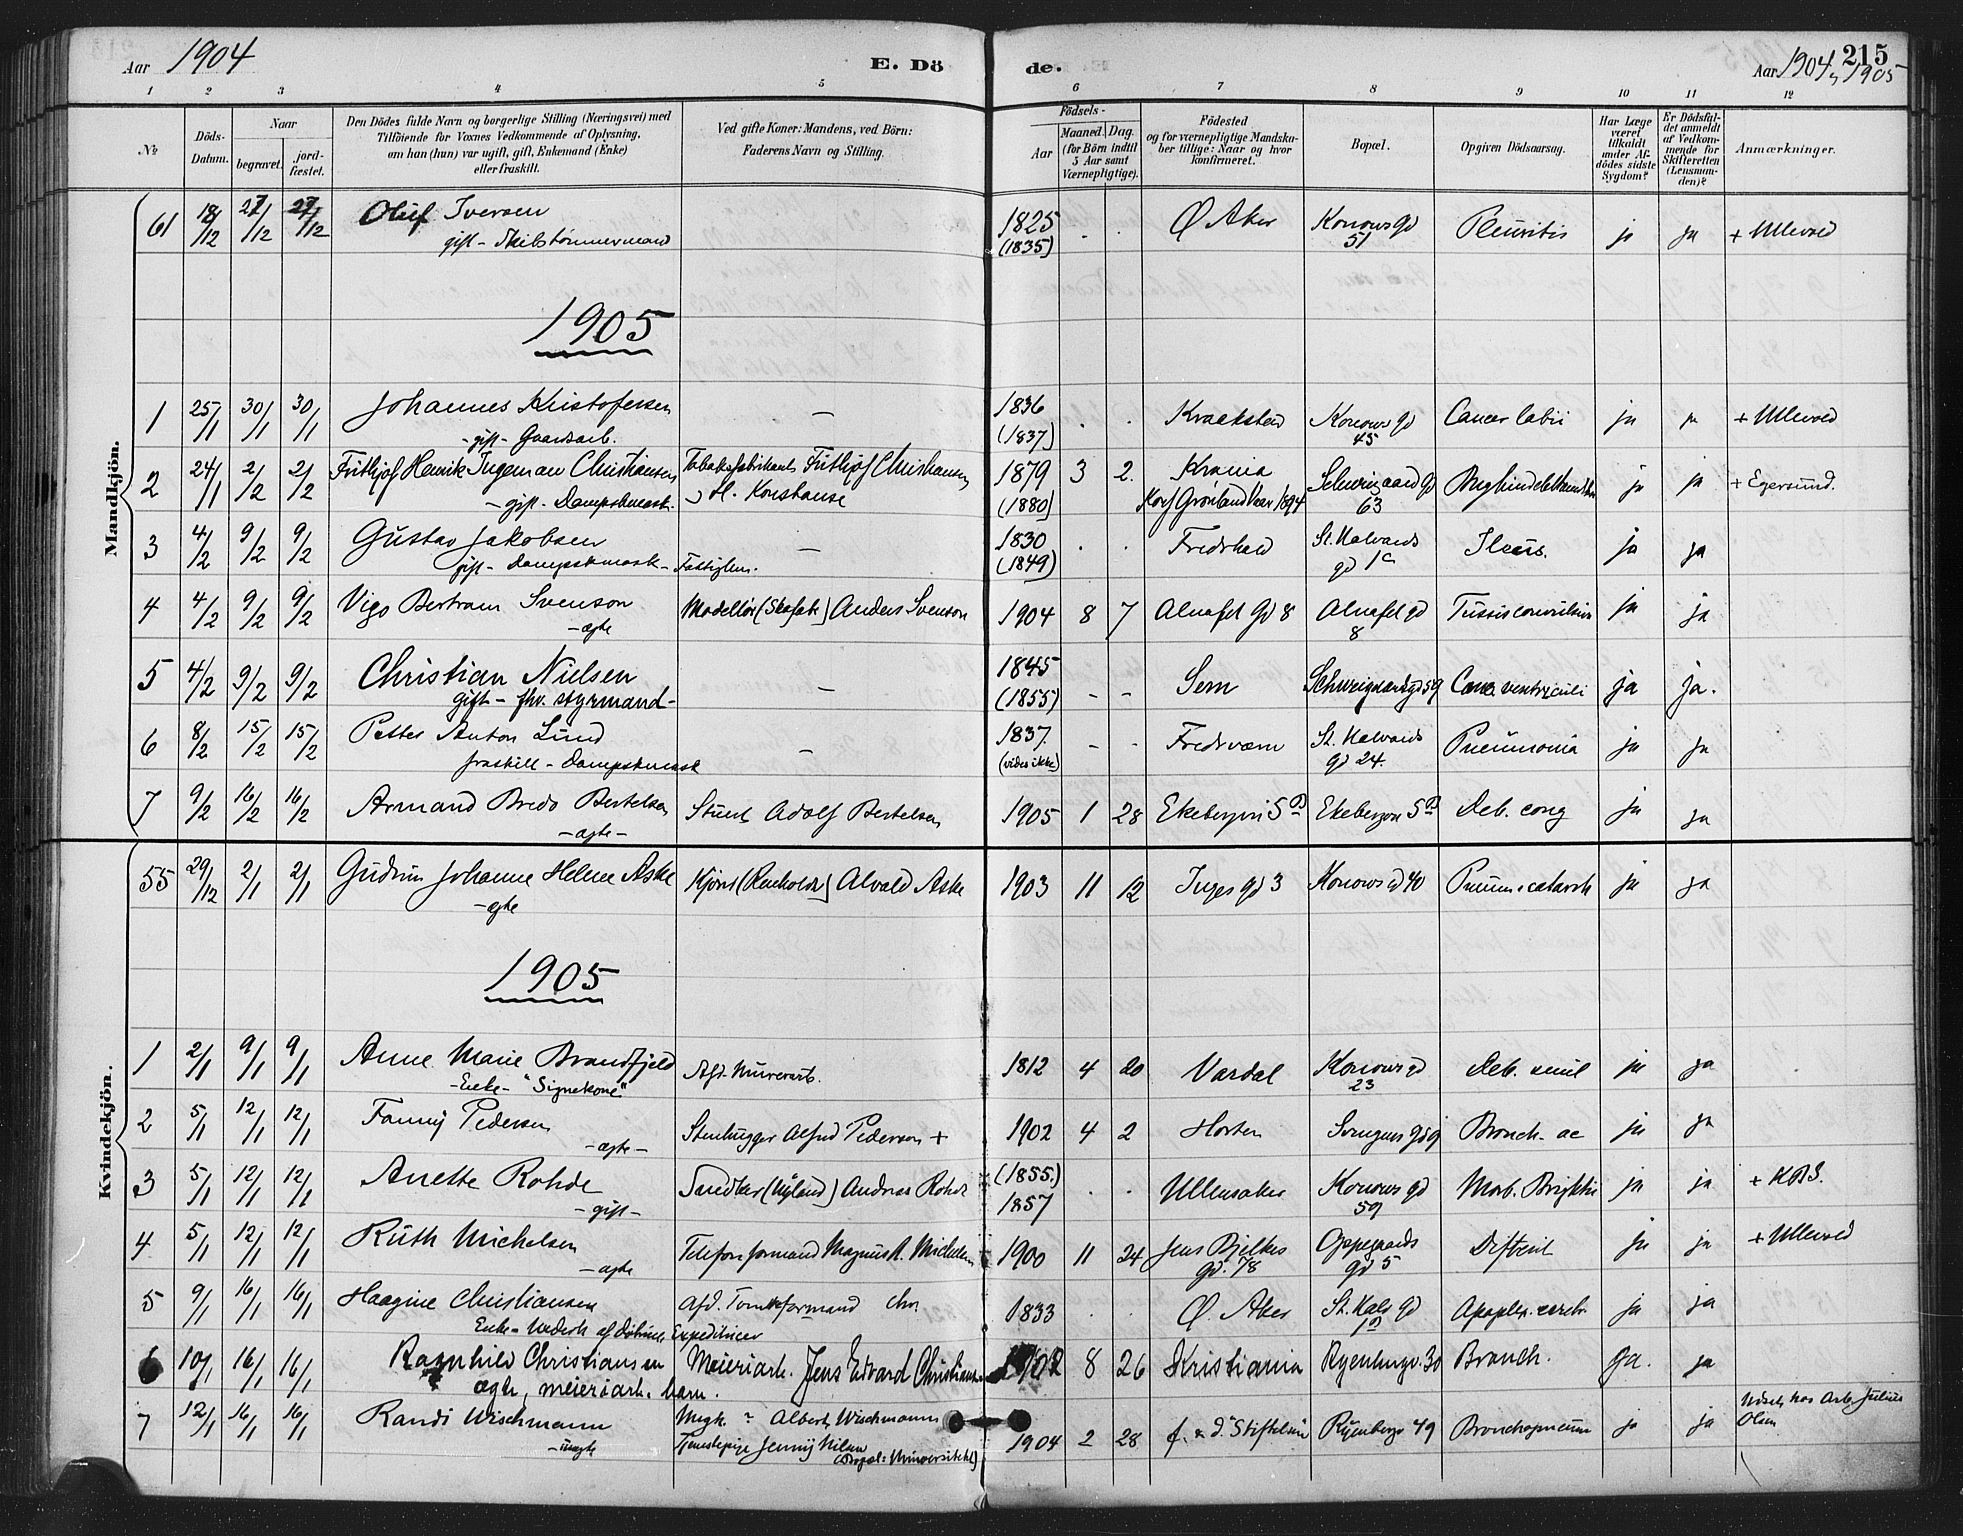 Aar 1904 E. Dö de. Aar 1904, 1905 215
1 2 3 4 5 6 7 8 9 10 11 12
№ Döds-Datum. Naar begravet. jord-fæstet. Den Dödes fulde Navn og borgerlige Stilling (Næringsvei) med Tilföiende for Voxnes Vedkommende af Oplysning, om han (hun) var ugift, gift, Enkemand (Enke) eller fraskilt. Ved gifte Koner: Mandens, ved Börn: Faderens Navn og Stilling. Födsels- Aar Maaned. Dag. (for Börn indtil 5 Aar samt Værnepligtige). Födested og for værnepligtige Mandskaber tillige: Naar og hvor konfirmeret. Bopæl. Opgiven Dödsaarsag. Har Læge været tilkaldt under Afdödes sidste Sygdom? Er Dödsfaldet anmeldt af Vedkommende for Skifteretten (Lensmanden)? Anmærkninger.
Mandkjön.
61 18/12 27/12 27/12 Oluf Iversen 1825 Ø Aker Konowsgd Pleuritis ja ja + Ullevold
gift - Skibstømmermand (1835) 51
1905
1 25/1 30/1 30/1 Johannes Kristofersen — 1836 Kraakstad Konows gd Cancer labii ja ja + Ullevold
- gift - Gaardsarb. (1837) 45
2 24/1 2/2 2/2 Frithjof Henrik Ingeman Christiansen Tobaksfabrikant Frithjof Christiansen 1879 3 2. Krania Schweigaard gd ja ja + Egersund.
- gift - Dampskmask. H. Konstanse (1880) Konf Grønland 1894 63
3 4/2 9/2 9/2 Gustav Jakobsen — 1830 Fredrhald St. Halvards Ileus. ja ja
gift - Dampskmask - Fattiglem. (1849) gd 1c
4 4/2 9/2 9/2 Vigo Bertram Svenson Modellør (Skofab.) Anders Svenson 1904 8 7 Alnafet Gd 8 Alnafet gd Tussis convulsiva ja ja
- ægte 8
5 4/2 9/2 9/2 Christian Nielsen — 1845 - - Sem Schweigaardsgd 59 Canc. ventriculi ja ja.
gift - fhv. styrmand - (1855)
6 8/2 15/2 15/2 Petter Anton Lund — 1837. - - Fredrværn St. Halvards Pneumonia ja ja
fraskilt - Dampskmask (vides ikke) gd 24.
7 9/2 16/2 16/2 Armand Bredo Bertelsen Adolf Bertelsen 1905 1 28 Ekebergvn 5B Ekebergvn 5B Deb. cong ja ja
- ægte -
Kvindekjön.
55 29/12 2/1 2/1 Gudrun Johanne Helene Aske Alvald Aske 1903 11 12 Inges gd 3 Konows gd 40 Pneum. catarrh ja ja
- ægte
1905
1 2/1 9/1 9/1 Anne Marie Brandfjeld Afd. Murerarb. 1812 4 20 Vardal Konows gd Deb. senil ja ja
- Enke - "Signekone" 23
2 5/1 12/1 12/1 Fanny Pedersen Stenhugger Alfred Pedersen + 1902 4 2 Horten Svenguns gd 9 Bronch. ac ja ja
- ægte -
3 5/1 12/1 12/1 Anette Rohde (Nyland) Andreas Rohde (1855.) Ullensaker Konows gd Morb. Brightii ja ja + KBS.
- gift - 1857 59
4 5/1 12/1 12/1 Ruth Michelsen Telefonformand Magnus A. Michelsen 1900 11 24 Jens Bjelkes Oppegaards Difterit ja ja + Ullevold
- ægte gd. 78 gd 5
5 9/1 16/1 16/1 Haagine Christiansen Afd. Tomteformand Chr. 1833 Ø. Aker St. Halv gd Apoplex. cerebr. ja ja
Enke - Expeditricer 1B
6 10/1 16/1 16/1 Ragnhild Christiansen Meieriarb. Jens Edvard Christiansen 1902 8 26 Kristiania Ryenbergv. 30 Bronch. ja. ja
ægte, meieriarb. barn.
7 12/1 16/1 16/1 Randi Wischmann Ungk. Albert Wischmann 1904 2 28 f. & d. Stiftelsen Ryenbergv 49 Bronchopneum ja ja Udsat hos Arb. Julius Olsen
- uægte Tjenestepige Jenny Nilsen
(Bopæl: Universitetet)